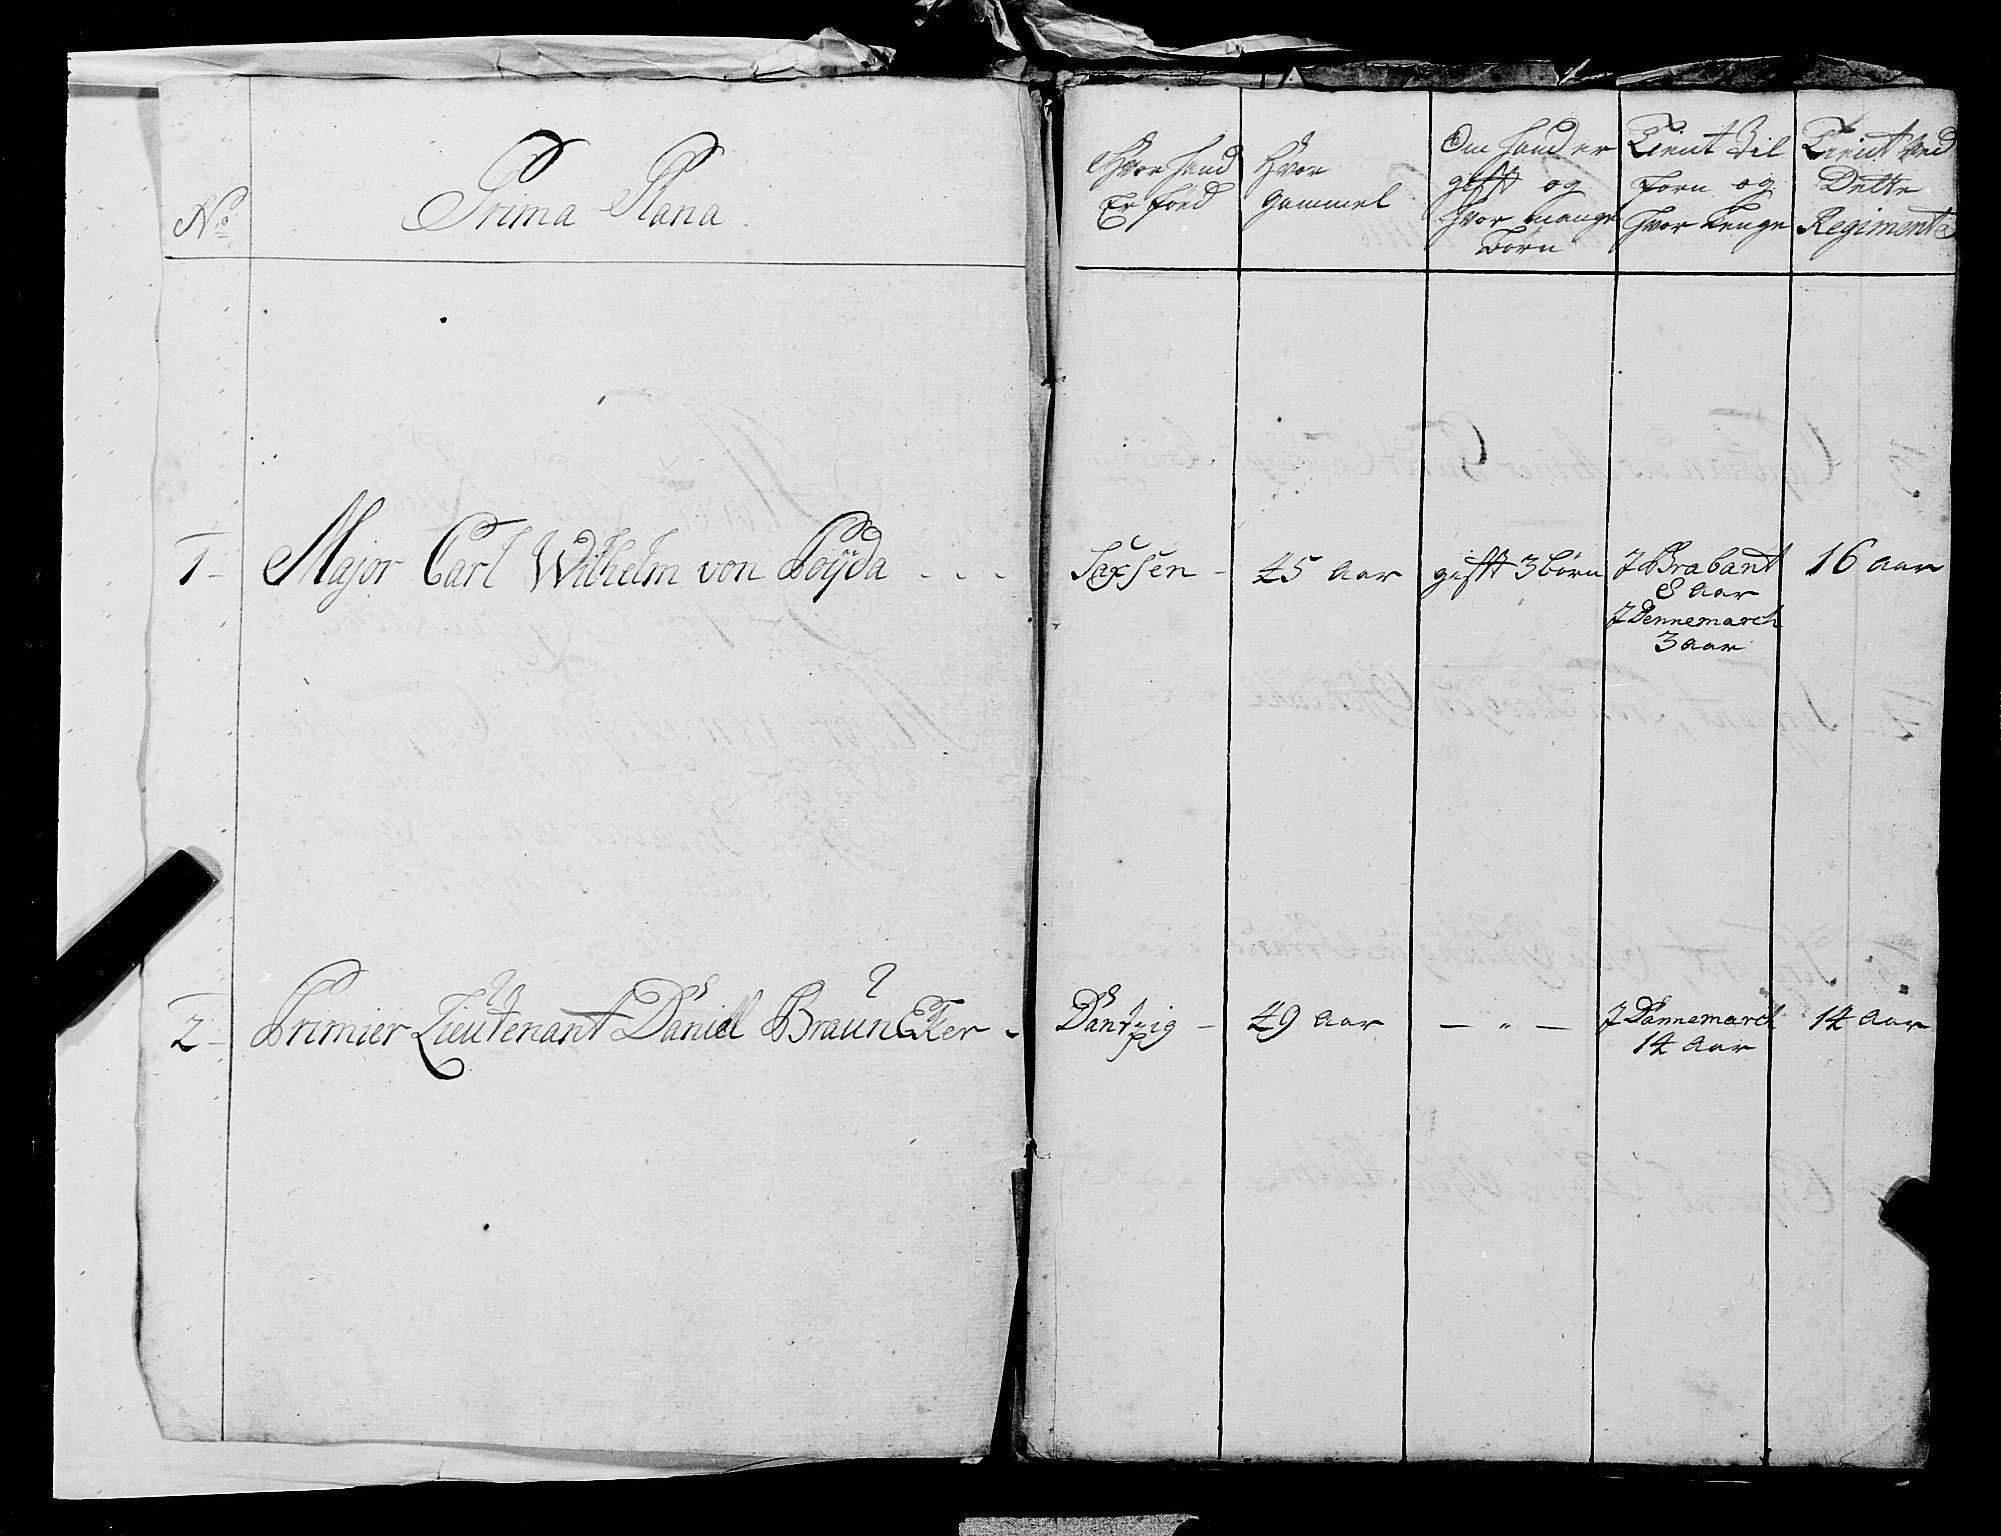 No
Prima Plana
Hvor hand
Er föed
Hvor
gammel
Om hand er
gifft og
hvor mange
Börn
Tient Til
forn og
hvor Lenge
Tient ved
Dette
Regimente
1
Major Carl Wilhelm von
Saxsen
45 Aar
gifft 3 börn
J Brabant
8 Aar
J Dennemarch
3 aar
16 Aar
2
Primier Lieutenant Daniel BraünEker
Dantzig
49 Aar
— " —
J Dannemarch
14 Aar
14 Aar